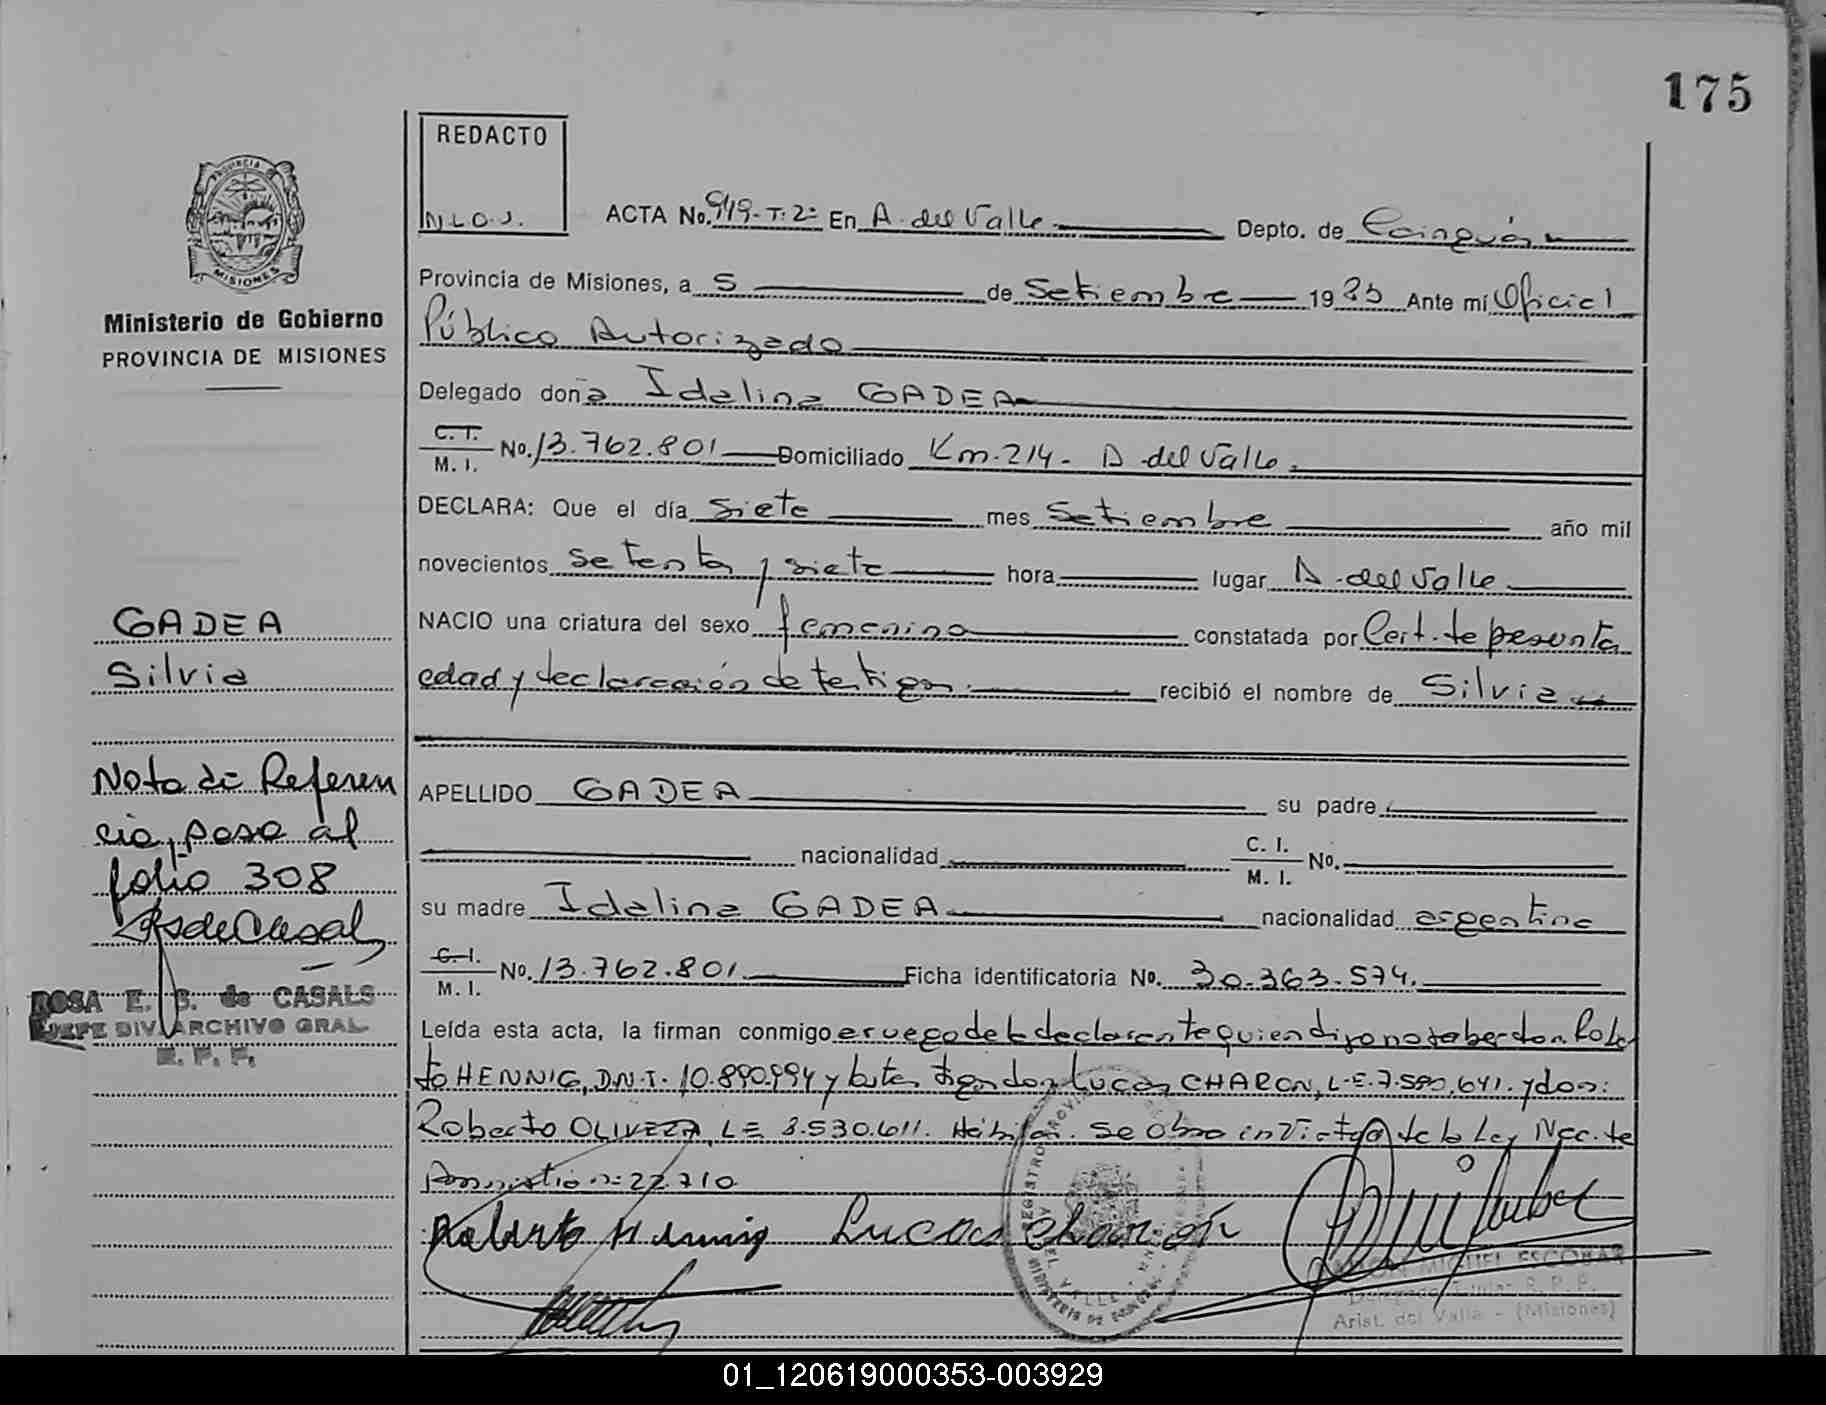 175
REDACTO
N.L.O.J.
ACTA No. 949-T.2º En A. del Valle Depto. de Cainguás
Provincia de Misiones, a 5 de Setiembre 1983 Ante mí Oficial
Público Autorizado
Delegado doña Idelina GADEA
C.I. M. I. No. 13.762.801 Domiciliado Km. 214 - A. del Valle.
DECLARA: Que el día siete mes Setiembre año mil
novecientos setenta y siete hora lugar A. del Valle
NACIO una criatura del sexo femenino constatada por Cert. de presunta
edad y declaración de testigos. recibió el nombre de Silvia
APELLIDO GADEA su padre
nacionalidad C. I. M. I. No.
su madre Idelina GADEA nacionalidad argentina
C.I. M. I. No. 13.762.801. Ficha identificatoria No. 30.363.574.
Leída esta acta, la firman conmigo a ruego de la declarante quien dijo no saber don Rober
to HENNIG, D.N.I. 10.890.994 y los testigos don Lucas CHARON, L.E. 7.590.641. y don:
Roberto OLIVEZA, L.E. 8.530.611. Hábiles. Se obra en Virtud de la Ley Nac. de
Amnistía nº 22.710
Roberto Hennig Lucas
RAMON MIGUEL ESCOBAR
Delegado Titular R. P. P.
Arist. del Valle - (Misiones)
PROVINCIA DE
MISIONES
Ministerio de Gobierno
PROVINCIA DE MISIONES
GADEA
Silvia
Nota de Referen
cia, pasa al
folio 308
ROSA E. B. de CASALS
JEFE DIV. ARCHIVO GRAL.
R. P. P.
01_120619000353-003929